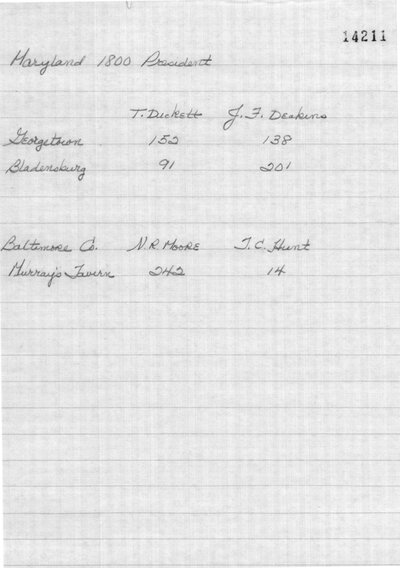 14211
Maryland 1800 President
T. Duckett J. F. Deakins
Georgetown 152 138
Bladensburg 91 201
Baltimore Co. N. R. Moore T. C. Hunt
Murray's Tavern 242 14